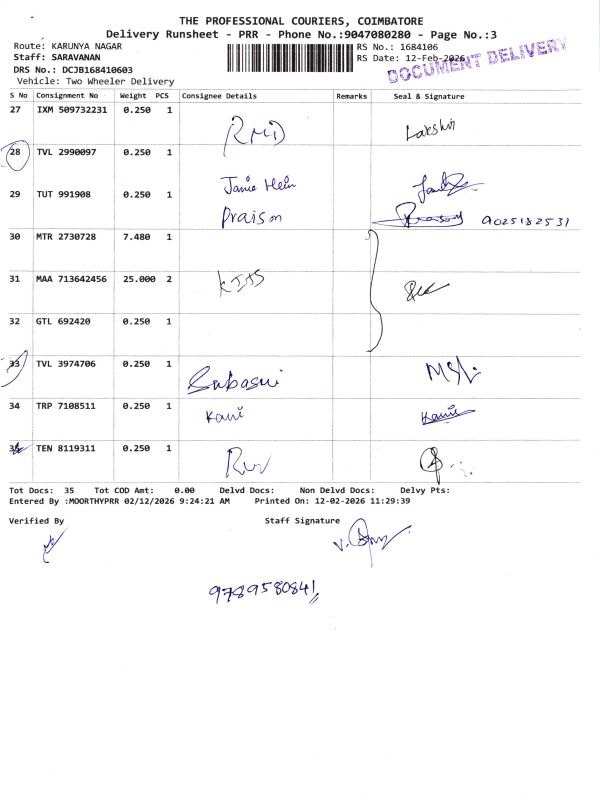 THE PROFESSIONAL COURIERS, COIMBATORE
Delivery Runsheet - PRR - Phone No.:9047080280 - Page No.:3
Route: KARUNYA NAGAR
RS No.: 1684106
Staff: SARAVANAN
RS Date: 12-Feb-2026
DOCUMENT DELIVERY
DRS No.: DCJB168410603
Vehicle: Two Wheeler Delivery
S No Consignment No Weight PCS Consignee Details Remarks Seal & Signature
27 IXM 509732231 0.250 1
28 TVL 2990097 0.250 1
29 TUT 991908 0.250 1
Praison 9025182531
30 MTR 2730728 7.480 1
31 MAA 713642456 25.000 2
32 GTL 692420 0.250 1
33 TVL 3974706 0.250 1
34 TRP 7108511 0.250 1
35 TEN 8119311 0.250 1
Tot Docs: 35 Tot COD Amt: 0.00 Delvd Docs: Non Delvd Docs: Delvy Pts:
Entered By :MOORTHYPRR 02/12/2026 9:24:21 AM Printed On: 12-02-2026 11:29:39
Verified By Staff Signature
9789580841